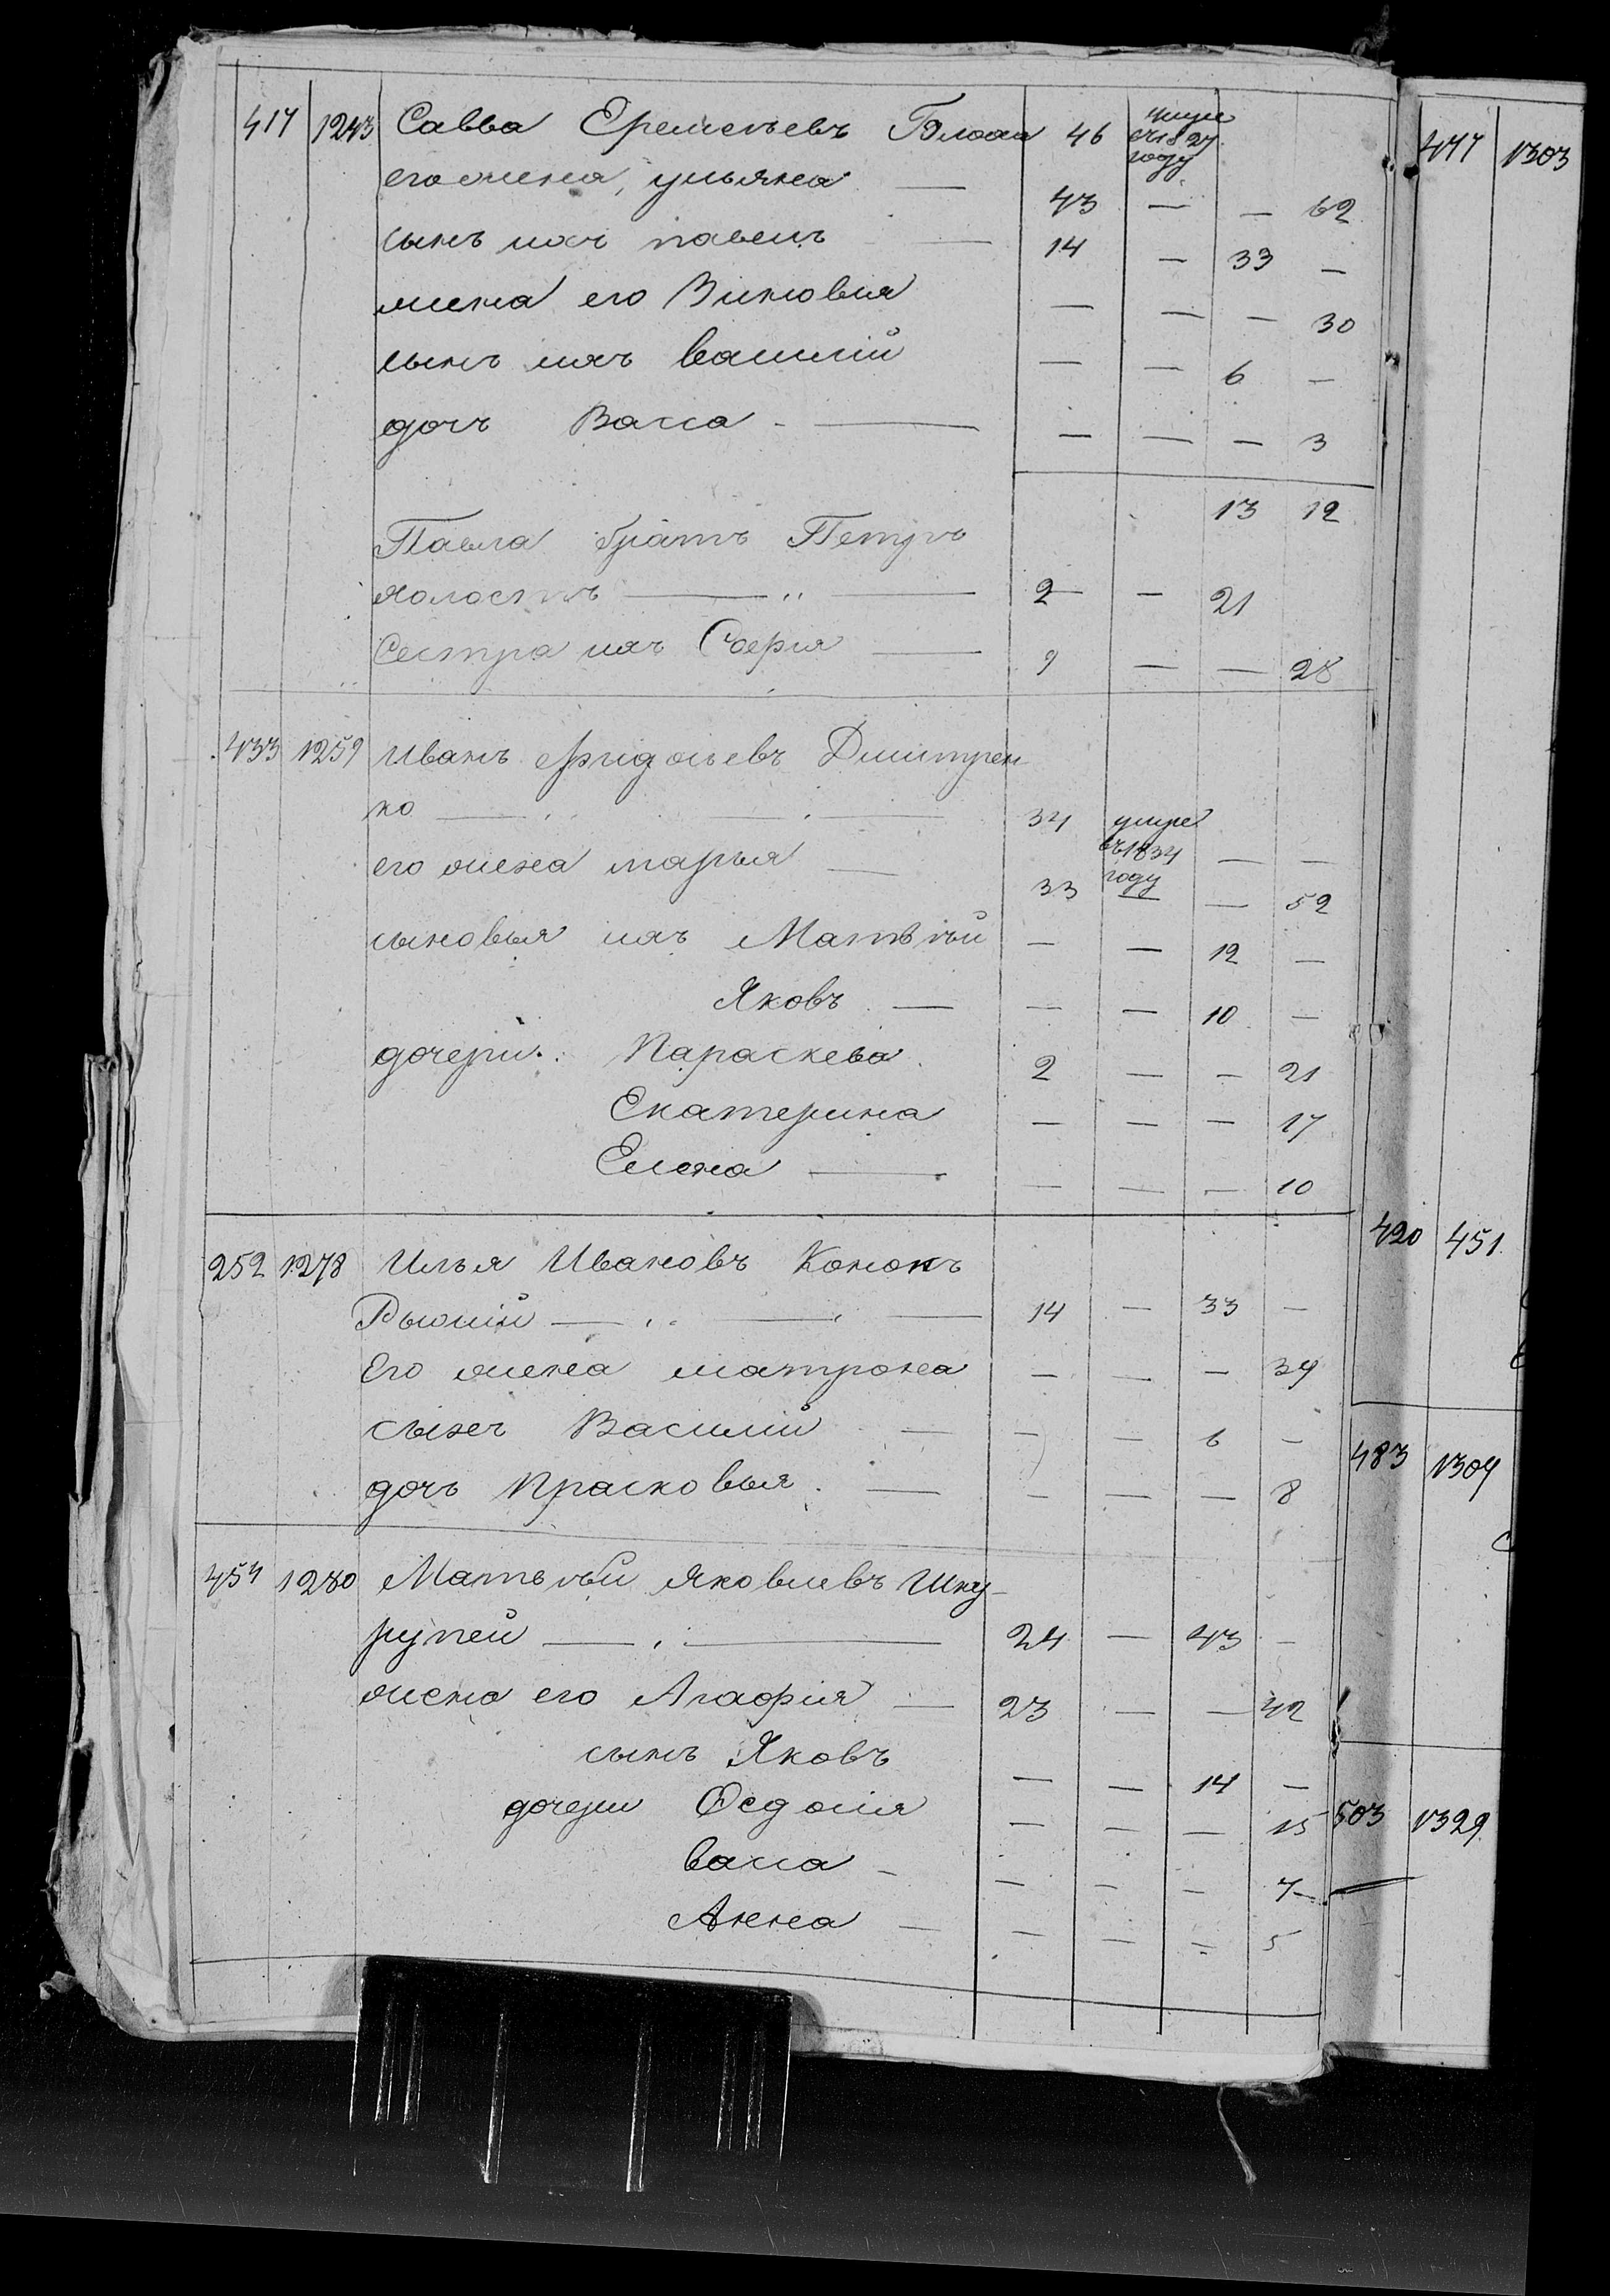 417 1243 Савва Еремеевъ 46 умре въ 1827 году
его жена, ульяна — 43 — — 62
сынъ ихъ павелъ — 14 — 33 —
жена его Зиновия — — — 30
сынъ ихъ василій — — 6 —
дочь Васса — — — — 3
13 12
Павла братъ Петръ
холостъ — „ — 2 — 21
Сестра ихъ Софія — 9 — — 28
433 1259 Иванъ Дмитрен
ко — 34 умре въ 1834 году — —
его жена марья — 33 — — 52
сыновья ихъ Матвѣй — — 12 —
Яковъ — — — 10 —
дочери: Параскева 2 — — 21
Екатерина — — — 17
Елена — — — — 10
252 1278 Илья Ивановъ Конокъ
Рыжій — 14 — 33 —
Его жена матрона — — — 34
сынъ Василій — — — 6 —
дочь Прасковья — — — — 8
454 1280 Матвѣй Яковлевъ Шку-
рупей — 24 — 43 —
жена его Агафія — 23 — — 42
сынъ Яковъ — — 14 —
дочери Федосія — — — 15
васса — — — — 7
Анна — — — — 5
477 1303
420 451
483 1304
503 1329